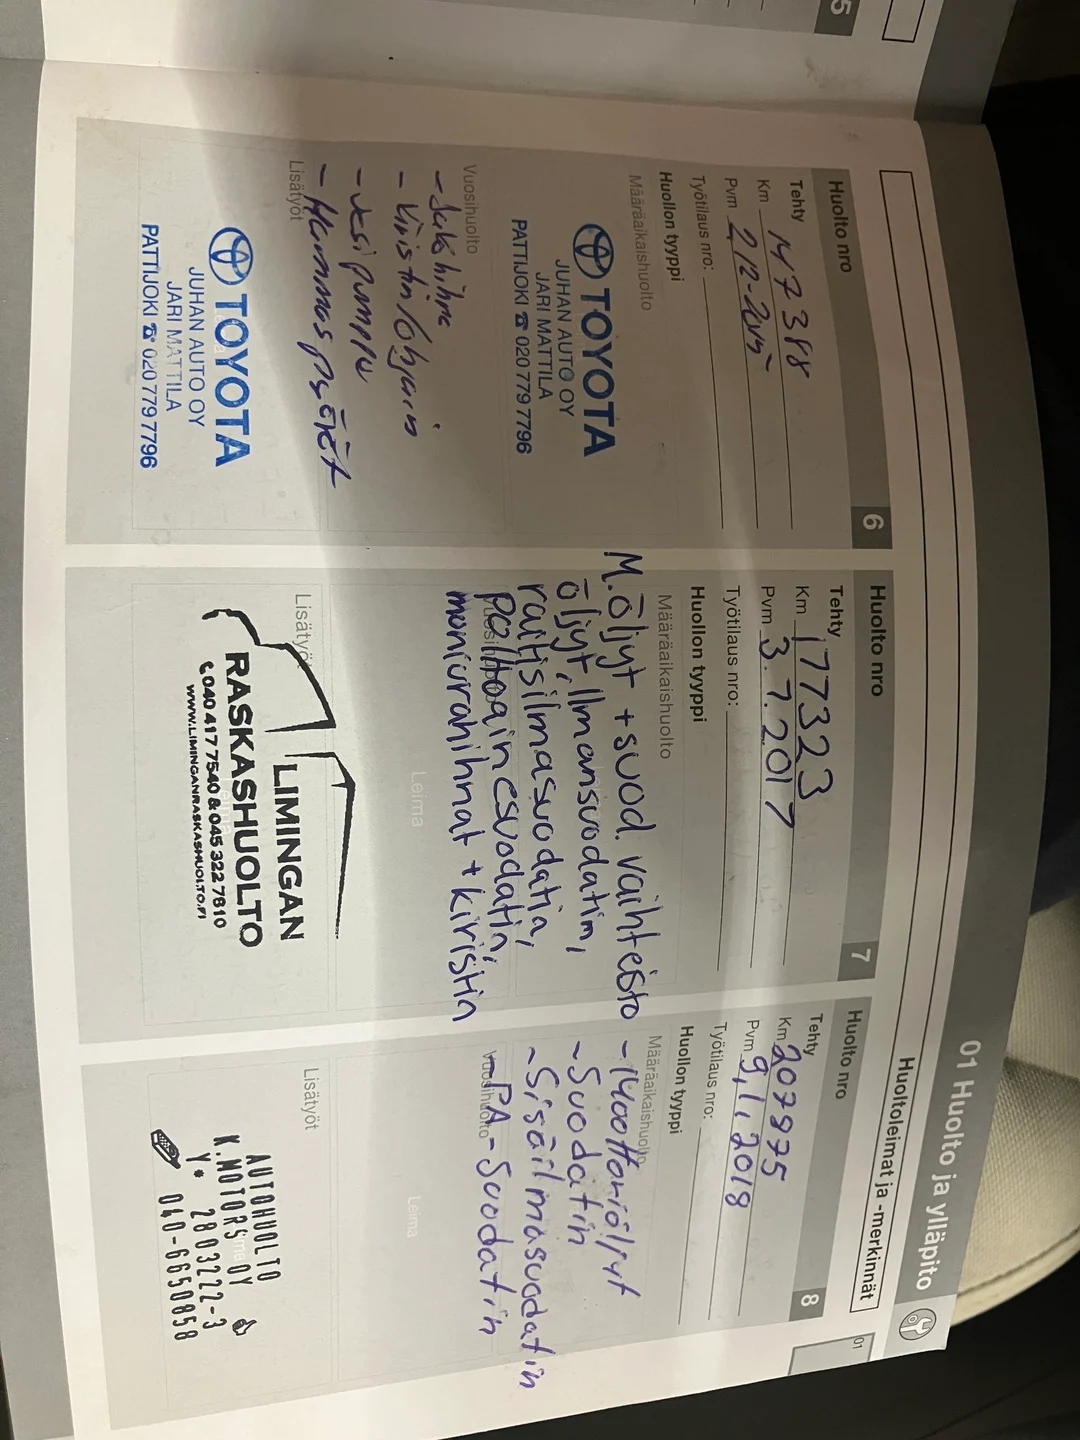 5
01 Huolto ja ylläpito
Huoltoleimat ja -merkinnät
01
Huolto nro 6
Tehty
Km 147388
Pvm 2.12-2015
Työtilaus nro:
Huollon tyyppi
Määräaikaishuolto
TOYOTA
JUHAN AUTO OY
JARI MATTILA
PATTIJOKI ☎ 020 779 7796
Vuosihuolto
- Jakohihna
- Kiristin/Ohjain
- Vesipumppu
- Hammaspyörät
Lisätyöt
TOYOTA
JUHAN AUTO OY
JARI MATTILA
PATTIJOKI ☎ 020 779 7796
Huolto nro 7
Tehty
Km 177323
Pvm 3.7.2017
Työtilaus nro:
Huollon tyyppi
Määräaikaishuolto
M.öljyt + suod. vaihteisto
öljyt, Ilmansuodatin,
raitisilmasuodatin,
Vuosihuolto
Polttoainesuodatin,
moniurahihnat + kiristin
Leima
Lisätyöt
LIMINGAN
RASKASHUOLTO
040 417 7540 & 045 322 7810
WWW.LIMINGANRASKASHUOLTO.FI
Huolto nro 8
Tehty
Km 207975
Pvm 9.1.2018
Työtilaus nro:
Huollon tyyppi
Määräaikaishuolto
- Moottoriöljyt
- Suodatin
- Sisäilmasuodatin
Vuosihuolto
- PA-Suodatin
Leima
Lisätyöt
AUTOHUOLTO
K.MOTORS OY
Y* 2803222-3
040-6650858